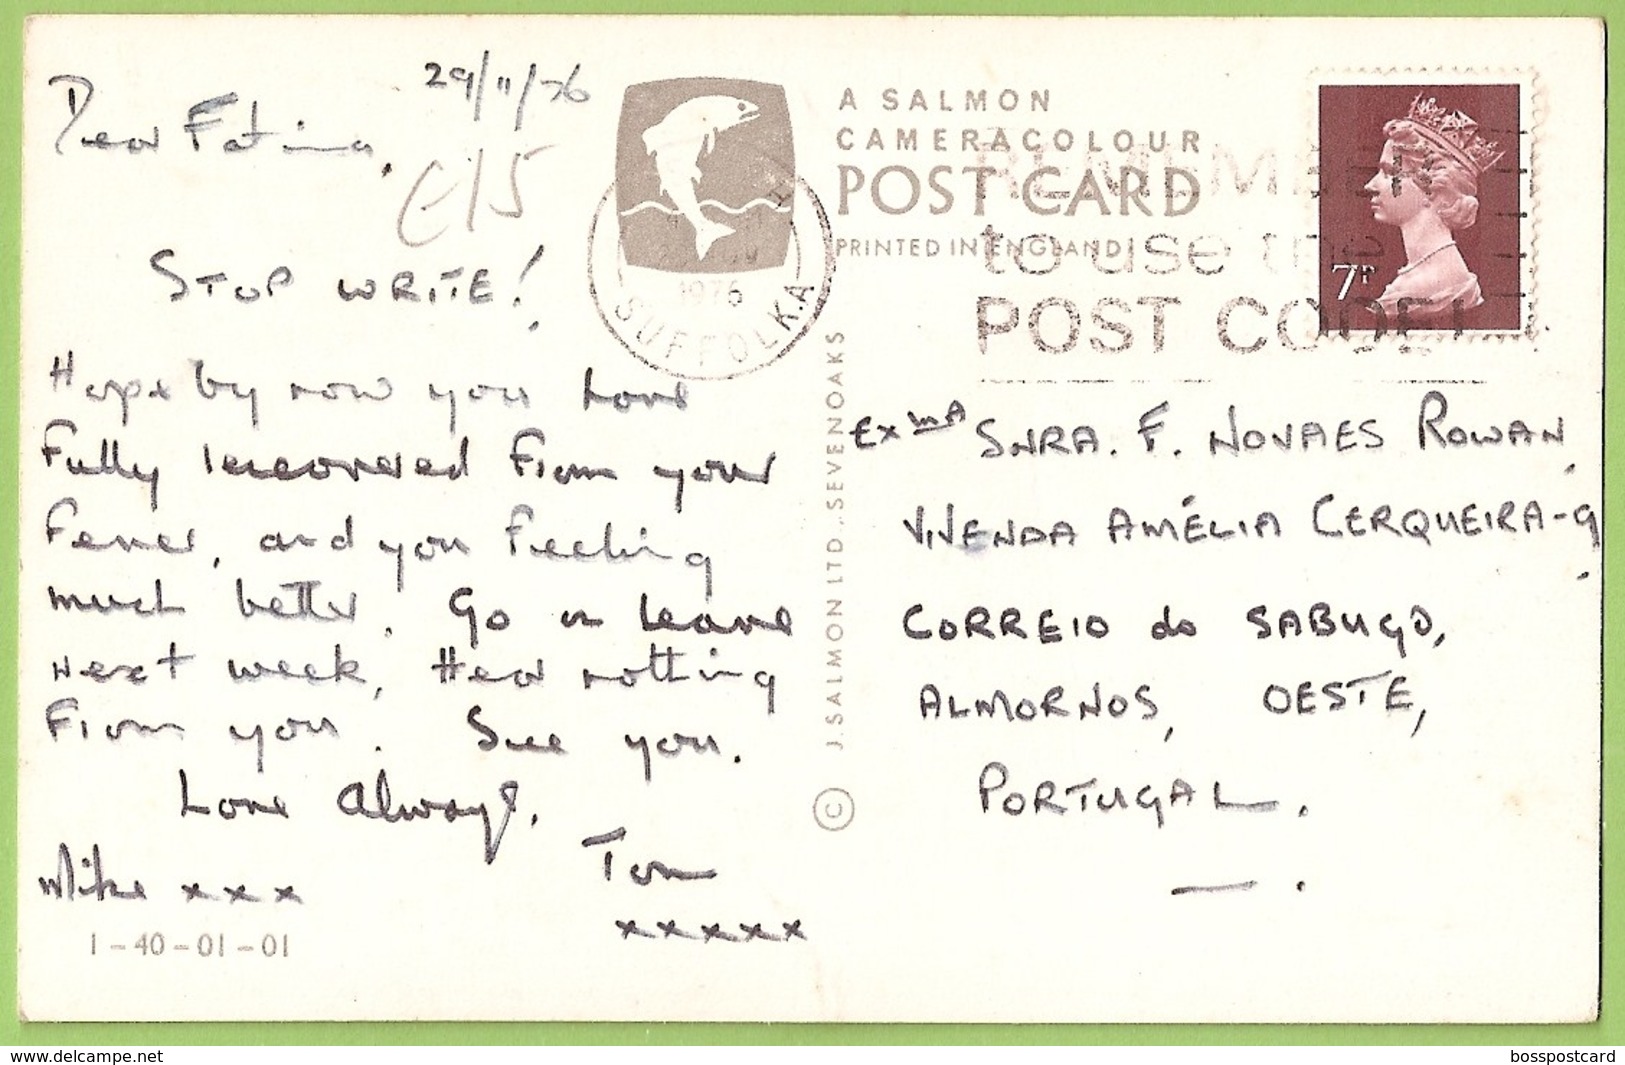 29/11/76
Dear Fatima,
£/15
STOP WRITE!
Hope by now you have
fully recovered from your
fever, and you feeling
much better. Go on leave
next week, Hear nothing
from you. See you.
Love Always,
Tom
Mike xxx
xxxxx
1-40-01-01
A SALMON
CAMERACOLOUR
POST CARD
PRINTED IN ENGLAND
1976
SUFFOLK A
REMEMBER
to use the
POST CODE!
7P
© J. SALMON LTD., SEVENOAKS
Exma SNRA. F. NOVAES ROWAN,
VIVENDA AMÉLIA CERQUEIRA-9
CORREIO do SABUGO,
ALMORNOS, OESTE,
PORTUGAL.
delcampe.net
bosspostcard